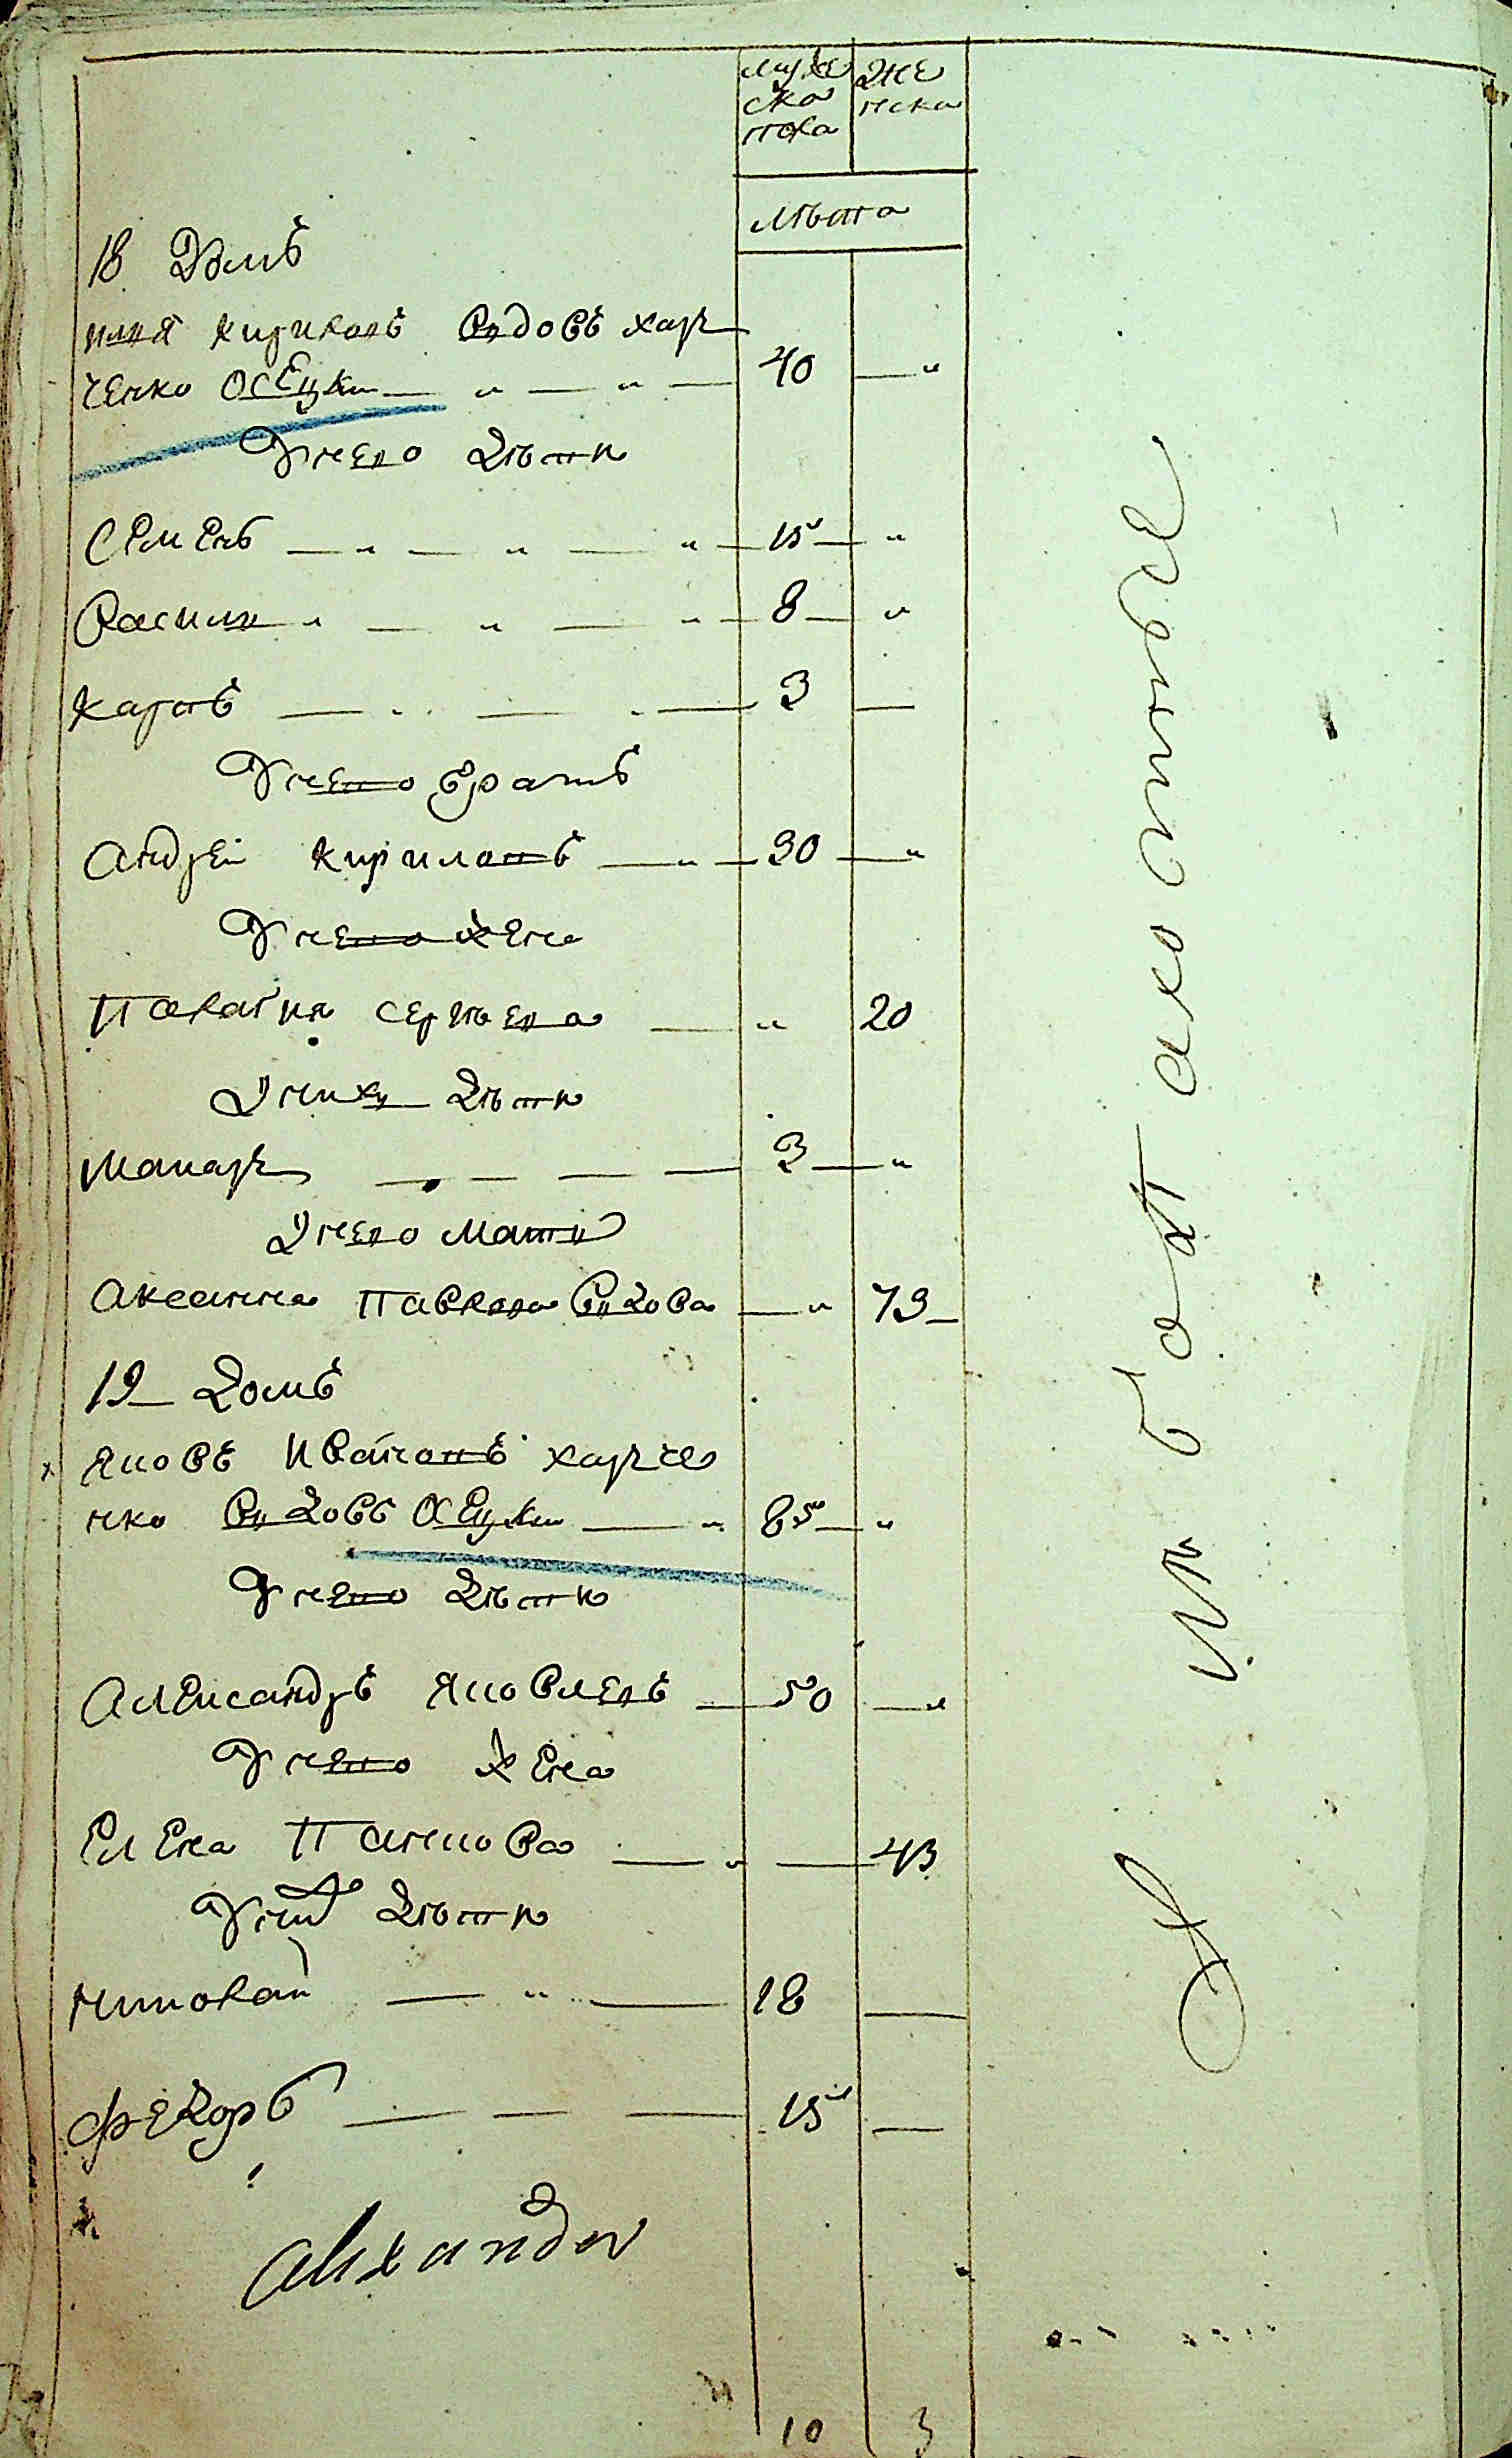 муже ско пола
женска
лѣта
18 Домъ
илия кириловъ вдовъ хар
ченко осецки — " — " — 40 — "
Унего дѣти
Семенъ — " — " — " — 15 — "
Васили " — " — " — 8 — "
карпъ — " — " — 3 —
Унего братъ
андрей кириловъ — " — 30 — "
Унего жена
Палагия сергѣева — " 20
Унихъ дѣти
Макаръ — — — — 3 — "
Унего мати
Аксанна Павлова вдова — " 79 —
19 — домъ
х яковъ Ивановъ харче
нко вдовъ Осецки — " 85 — "
Унего дѣти
Александръ яковлевъ — 50 — "
Унего жена
Елена Панкова — " — 43
Уних дѣти
николай — " — 18 —
федоръ — — — 15 —
10 3